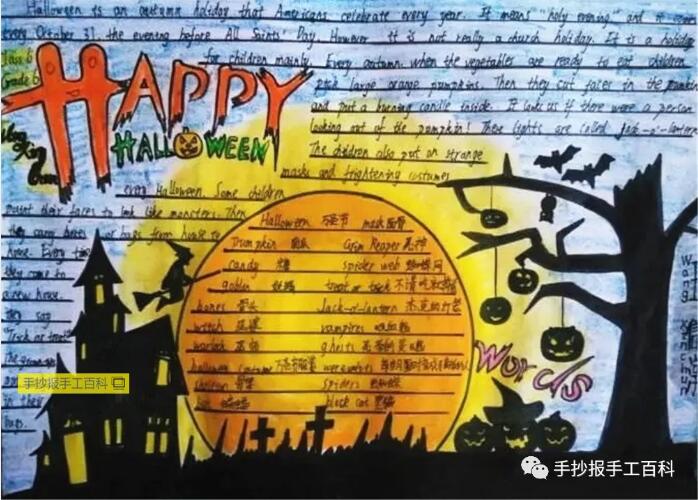 Halloween is an autumn holiday that Americans celebrate every year. It means "holy evening," and it comes
every October 31, the evening before All Saints' Day. However, it is not really a church holiday. It is a holiday
for children mainly. Every autumn, when the vegetables are ready to eat children
pick large orange pumpkins. Then they cut faces in the pumpkin
and put a burning candle inside. It looks as if there were a person
looking out of the pumpkin! These lights are called jack-o'-lantern
The children also put on strange
masks and frightening costumes
every Halloween. Some children
paint their faces to look like monsters. Then
they carry boxes or bags from house to
home. Every time
they come to
a new house,
they say
"Trick or treat!
The grown-ups
in their
bags.
Class 6
Grade 6
HAPPY
HALLOWEEN
Halloween 万圣节 mask 面具
Pumpkin 南瓜 Grim Reaper 死神
candy 糖 spider web 蜘蛛网
goblin 妖精 treat or trick 不请吃就捣蛋
bones 骨头 Jack-o'-lantern 杰克的灯笼
witch 巫婆 vampires 吸血鬼
warlock 巫师 ghosts
halloween costume 万圣节服装 werewolves
skeleton 骨架 spiders
bat 蝙蝠 black cat 黑猫
Words
Wang
手抄报手工百科
手抄报手工百科